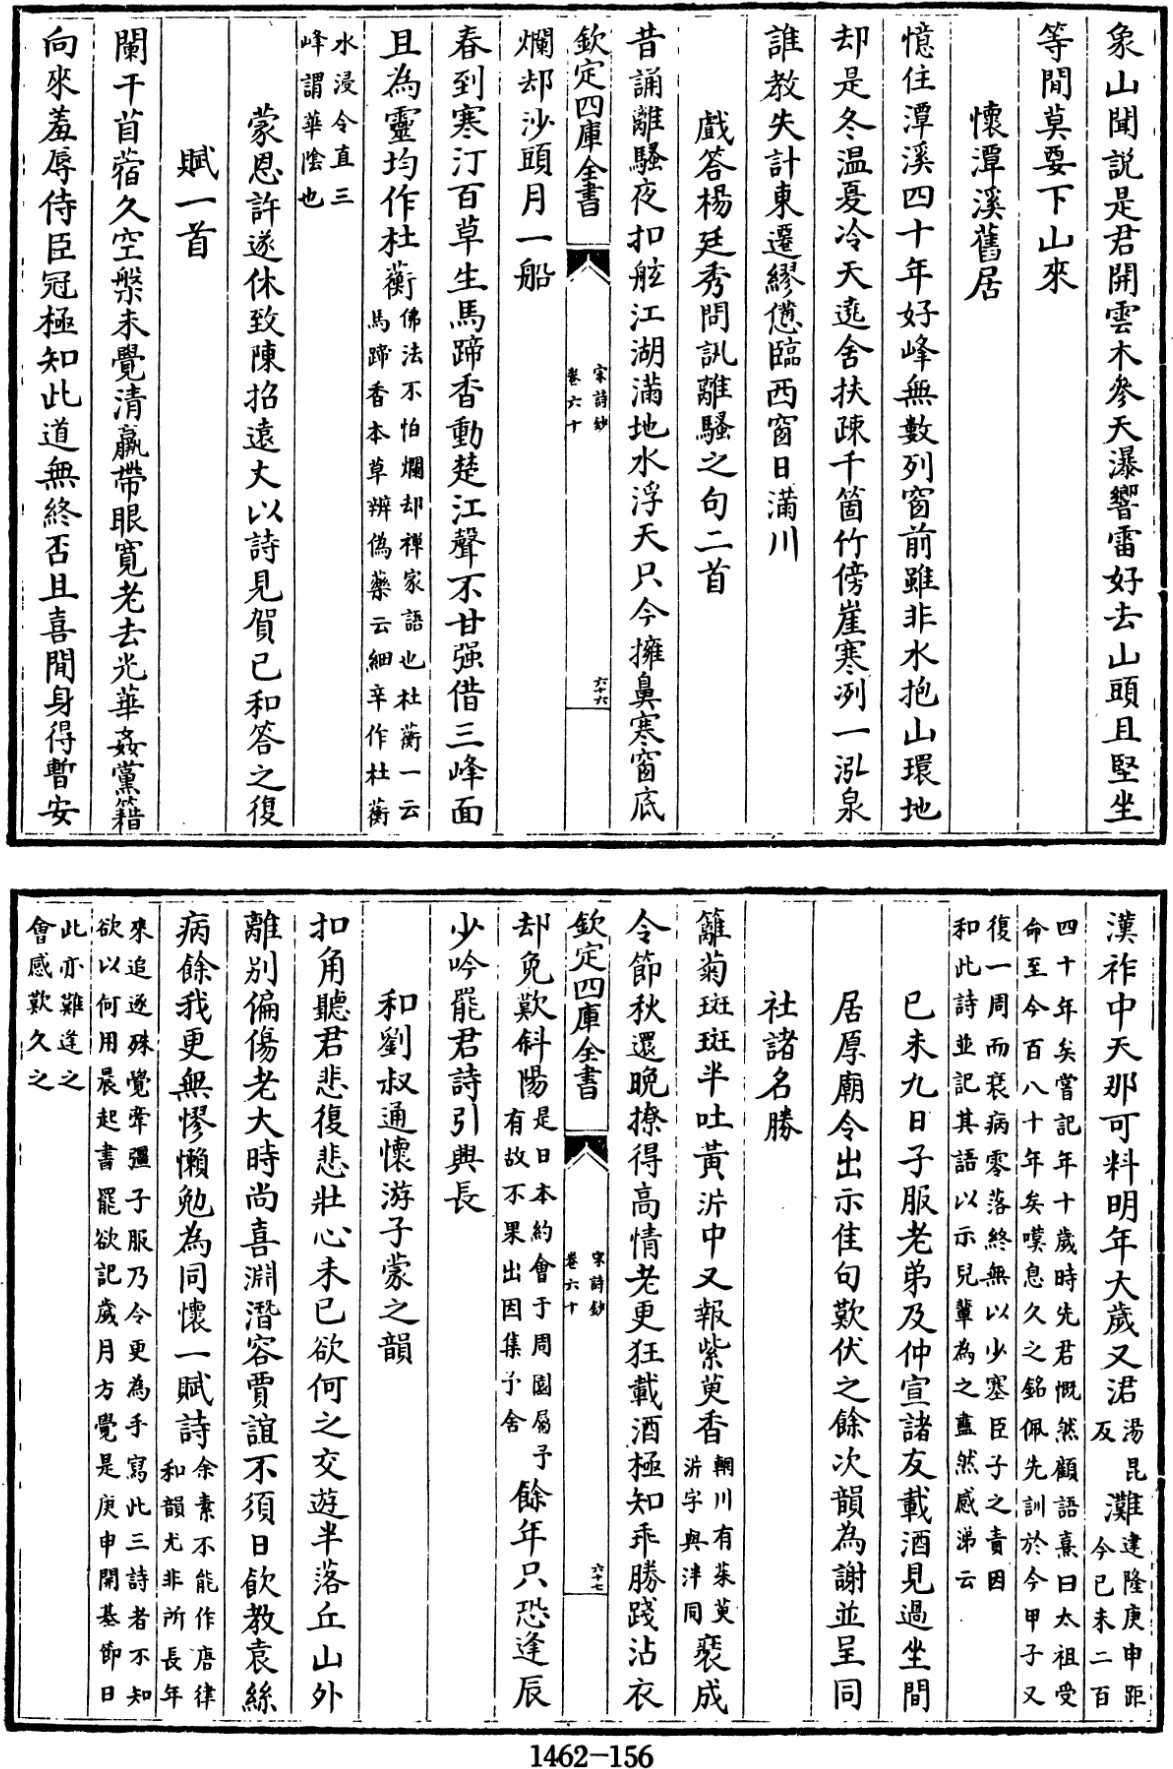 象山聞説是君開雲木參天瀑響雷好去山頭且堅坐
等閒莫要下山來
懷潭溪舊居
憶住潭溪四十年好峰無數列窗前雖非水抱山環地
却是冬温夏冷天遶舍扶疎千箇竹傍崖寒冽一泓泉
誰教失計東遷繆憊臨西窗日滿川
戲答楊廷秀問訊離騷之句二首
昔誦離騷夜扣舷江湖滿地水浮天只今擁鼻寒窗底
欽定四庫全書
宋詩鈔
卷六十
六十六
爛却沙頭月一船
春到寒汀百草生馬蹄香動楚江聲不甘强借三峰面
且為靈均作杜蘅
佛法不怕爛却禪家語也杜蘅一云
馬蹄香本草辨偽藥云細辛作杜蘅
水浸令直三
峰謂華陰也
蒙恩許遂休致陳招遠丈以詩見賀已和答之復
賦一首
闌干苜蓿久空槃未覺清羸帶眼寛老去光華姦黨籍
向來羞辱侍臣冠極知此道無終否且喜閒身得暫安
漢祚中天那可料明年大歲又涒
湯昆
反
灘
建隆庚申距
今已未二百
四十年矣嘗記年十歲時先君慨然顧語熹曰太祖受
命至今百八十年矣嘆息久之銘佩先訓於今甲子又
復一周而衰病零落終無以少塞臣子之責因
和此詩並記其語以示兒輩為之藎然感涕云
已未九日子服老弟及仲宣諸友載酒見過坐間
居原廟令出示佳句歎伏之餘次韻為謝並呈同
社諸名勝
籬菊斑斑半吐黃泋中又報紫萸香
輞川有茱萸
泋字與泮同
裛成
令節秋還晚撩得高情老更狂載酒極知乖勝踐沾衣
欽定四庫全書
宋詩鈔
卷六十
六十七
却免歎斜陽
是日本約會于周園扇予
有故不果出因集予舍
餘年只恐逢辰
少吟罷君詩引興長
和劉叔通懷游子蒙之韻
扣角聽君悲復悲壯心未已欲何之交遊半落丘山外
離别偏傷老大時尚喜淵潛容賈誼不須日飲教袁絲
病餘我更無憀懶勉為同懷一賦詩
余素不能作唐律
和韻尤非所長年
來追逐殊覺牽彊子服乃令更為手寫此三詩者不知
欲以何用晨起書罷欲記歲月方覺是庚申開基節日
此亦難逢之
會感歎久之
1462-156